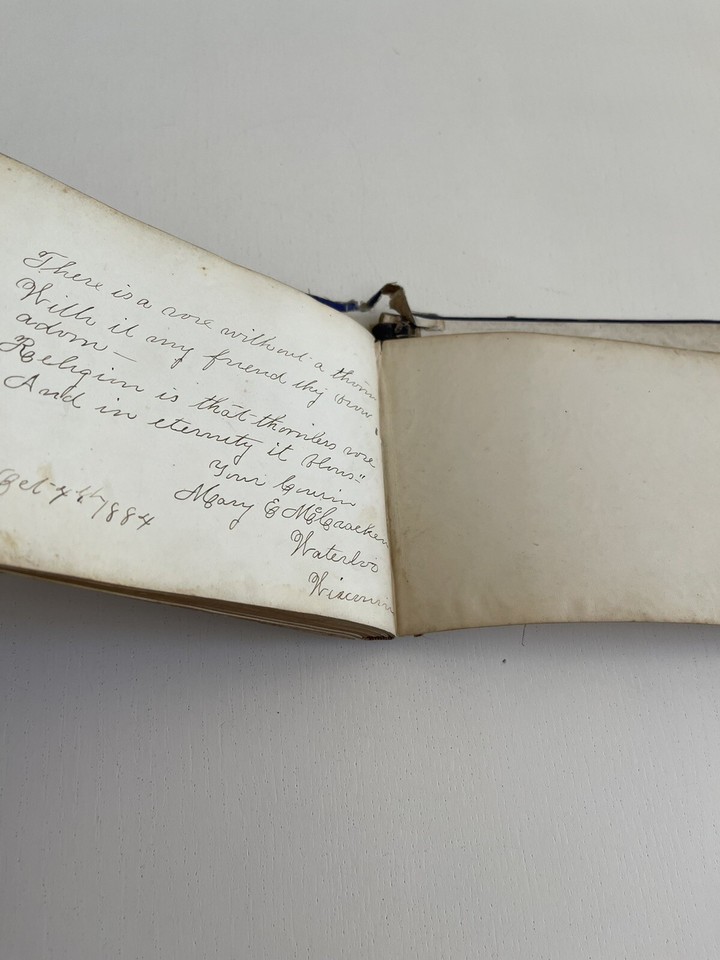 There is a rose without a thorn
With it my friend thy brow
adorn —
Religion is that thornless rose
And in eternity it blows"
Your Cousin
Mary E McCracken
Waterloo
Wisconsin
Oct 4th/1884